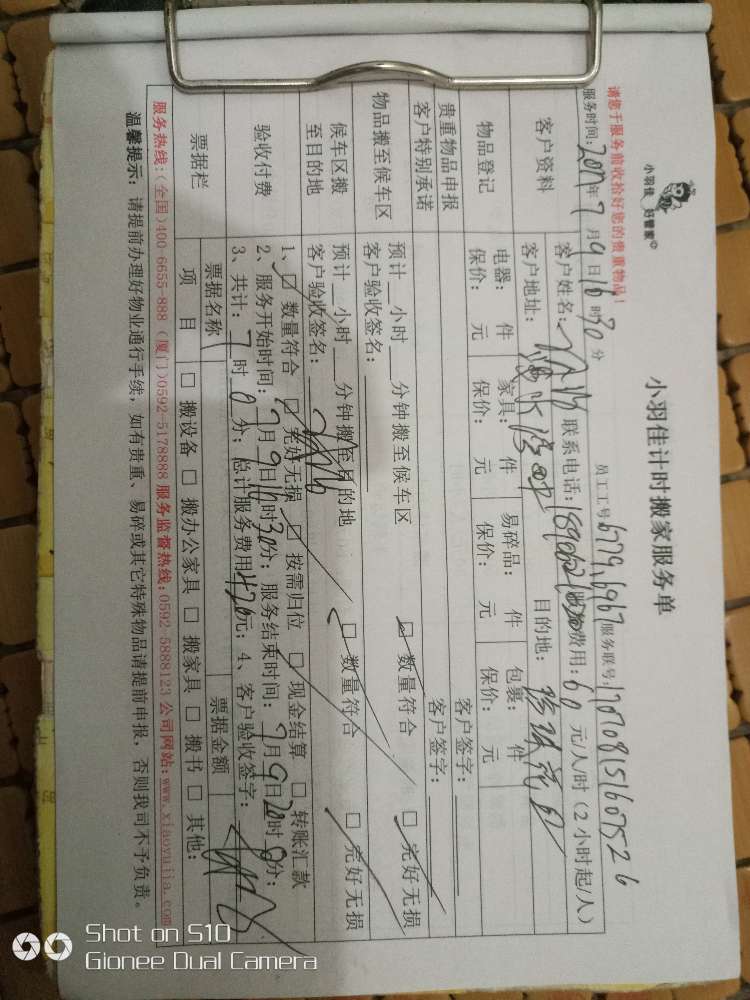 小羽佳
好管家
小羽佳计时搬家服务单
请您于服务前收拾好您的贵重物品!
员工工号6779,6967服务联号:17070815160752 6
服务时间:2017年7月9日16时30分
客户资料
客户姓名: 联系电话: 服务费用:60元/人/时(2小时起/人)
客户地址: 目的地:
物品登记
电器: 件 家具: 件 易碎品: 件 包裹: 件
保价: 元 保价: 元 保价: 元 保价: 元
贵重物品申报 客户签字:
客户特别承诺 客户签字:
物品搬至候车区
预计 小时 分钟搬至候车区 □ 数量符合 □ 完好无损
客户验收签名:
候车区搬至目的地
预计 小时 分钟搬至目的地 □ 数量符合 □ 完好无损
客户验收签名:
验收付费
1、□ 数量符合 □ 完好无损 □ 按需归位 □ 现金结算 □ 转账汇款
2、服务开始时间:7月9日16时30分;服务结束时间:7月9日20时0分;
3、共计:7时0分;总计服务费用420元;4、客户验收签字:
票据栏
票据名称 票据金额
项目 □ 搬设备 □ 搬办公家具 □ 搬家具 □ 搬书 □ 其他:
服务热线:(全国)400-6655-888 (厦门)0592-5178888 服务监督热线:0592-5888123 公司网站:www.xiaoyujia.com
温馨提示:请提前办理好物业通行手续,如有贵重、易碎或其它特殊物品请提前申报,否则我司不予负责。
Shot on S10
Gionee Dual Camera